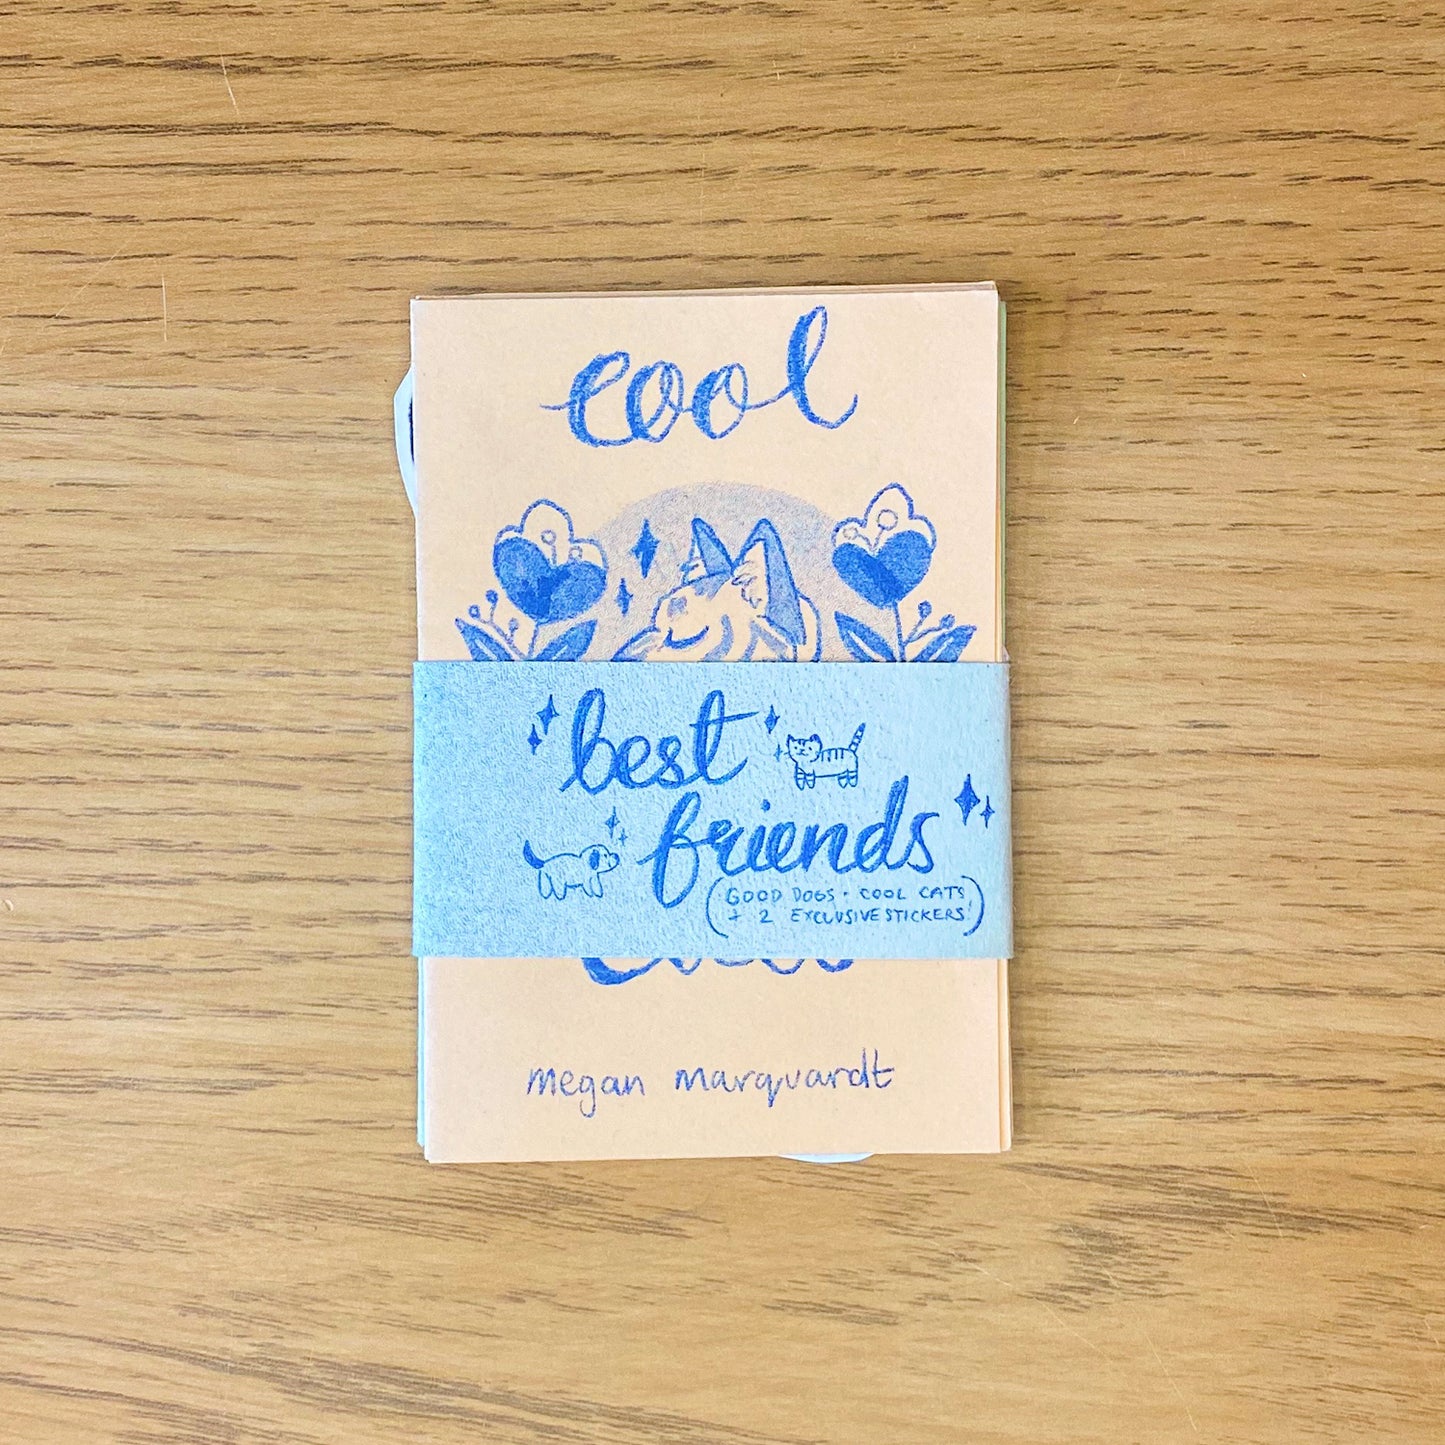 cool
best
friends
(GOOD DOGS · COOL CATS
+ 2 EXCLUSIVE STICKERS!)
megan marquardt